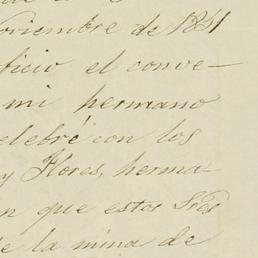 oviembre de 1861
ficio el conve-
mi hermano
elebré con los
y Flores, herma
n que estos Sres
e la mina de